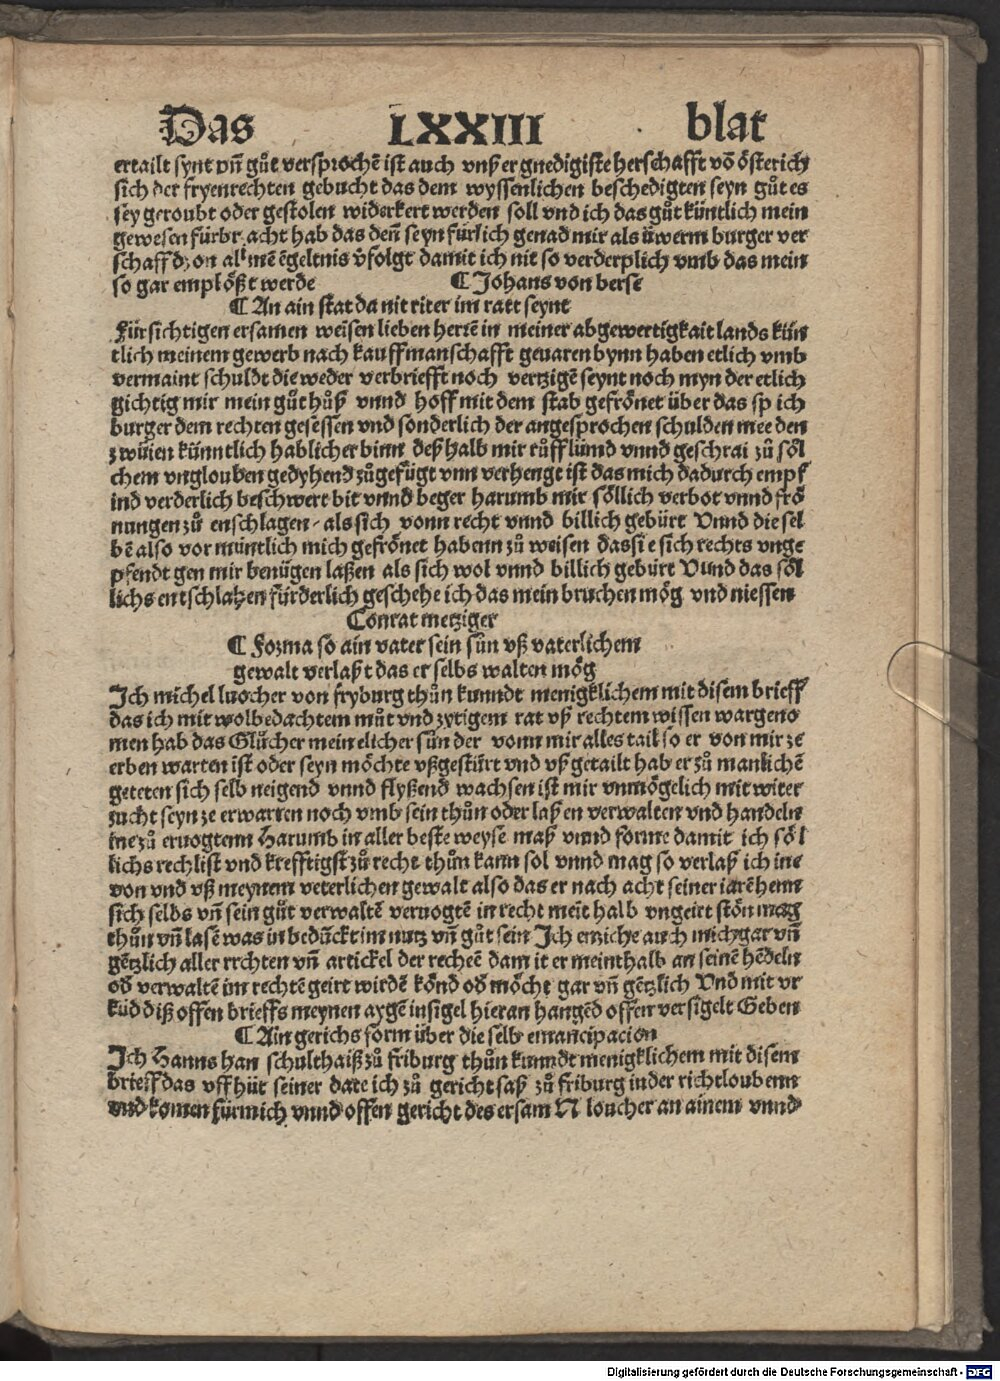 Das LXXIII blat
ertailt synt vñ gůt versprochē ist auch vnßer gnedigiste herschafft võ österich
sich der fryenrechten gebucht das dem wyssenlichen beschedigten seyn gůt es
sey geroubt oder gestolen widerkert werden soll vnd ich das gůt küntlich mein
gewesen fürbracht hab das deñ seyn fürlich genad mir als üwerm burger ver
schaff dz on all mē ēgeltnis v̄folgt damit ich nit so verderplich vmb das mein
so gar emplößt werde ¶ Johans von berse
¶ An ain stat da nit riter im ratt seynt
Fürsichtigen ersamen weisen lieben herrē in meiner abgewertigkait lands kün
tlich meinem gewerb nach kauffmanschafft geuaren bynn haben etlich vmb
vermaint schuldt die weder verbriefft noch vertzigē seynt noch myn der etlich
gichtig mir mein gůt hůß vnnd hoff mit dem stab gefrönet über das sp ich
burger dem rechten gesessen vnd sonderlich der angesprochen schulden mee den
zwüien künntlich hablicher binn deßhalb mir růff lümd vnnd geschrai zů söl
chem vnglouben gedyhend zůgefügt vnn verhengt ist das mich dadurch empf
ind verderlich beschwert bit vnnd beger harumb mir söllich verbot vnnd frö
nungen zů enschlagen / als sich vonn recht vnnd billich gebürt Vnnd die sel
bē also vor müntlich mich gefrönet habenn zů weisen das sie sich rechts vnge
pfendt gen mir benügen laßen als sich wol vnnd billich gebürt Vund das söl
lichs entschlahen fürderlich geschehe ich das mein bruchen mög vnd niessen
Conrat metziger
¶ Forma so ain vater sein sůn vß vaterlichem
gewalt verlaßt das er selbs walten mög
Ich michel luocher von fryburg thůn kunndt menigklichem mit disem brieff
das ich mit wolbedachtem můt vnd zytigem rat vß rechtem wissen wargeno
men hab das Glücher mein elicher sůn der vonn mir alles tail so er von mir ze
erben warten ist oder seyn möchte vßgestürt vnd vß getailt hab er zů manlichē
geteten sich selb neigend vnnd flyßend wachsen ist mir vnmögelich mit witer
zucht seyn ze erwarten noch vmb sein thůn oder laßen verwalten vnd handeln
ine zů eruogtenn Harumb in aller beste weyse maß vnnd forme damit ich söl
lichs rechlist vnd krefftigst zů recht thůn kann sol vnnd mag so verlaß ich ine
von vnd vß meynem veterlichen gewalt also das er nach acht seiner iarē henn
sich selbs vñ sein gůt verwaltē veruogtē in recht meīt halb vngeirt stön mag
thůn vñ lasē was in bedückt im nutz vñ gůt sein Ich erziche auch mich gar vñ
gētzlich aller rrchten vñ artickel der recheē dam it er meinthalb an seinē hēdeln
od verwaltē im rechtē geirt wirdē kōnd od möcht gar vñ gētzlich Vnd mit vr
kūd diß offen brieffs meynen aygē insigel hieran hangēd offen versigelt Geben
¶ Ain gerichs form über die selb emancipacion
Ich Hanns han schulthaiß zů friburg thůn kunndt menigklichem mit disem
brieff das vff hüt seiner date ich zů gericht saß zů friburg in der richtloubenn
vnd komen für mich vnnd offen gericht des ersam N loucher an ainem vnnd
Digitalisierung gefördert durch die Deutsche Forschungsgemeinschaft - DFG